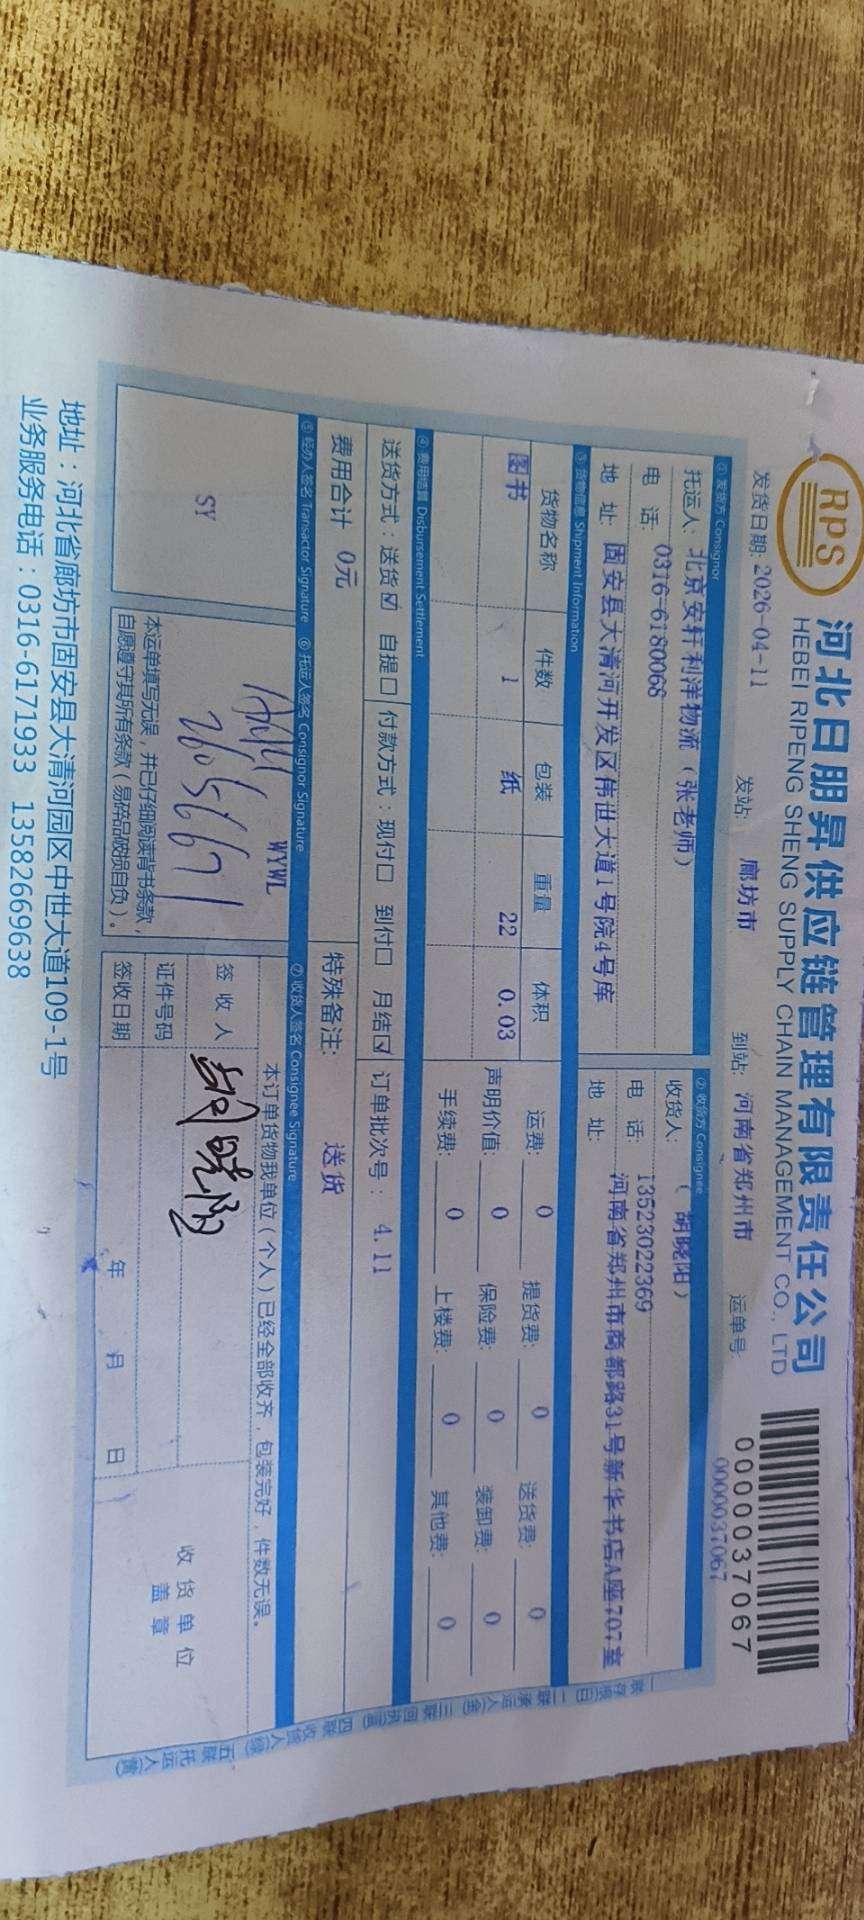 RPS
河北日朋昇供应链管理有限责任公司
HEBEI RIPENG SHENG SUPPLY CHAIN MANAGEMENT CO., LTD
发货日期: 2026-04-11 发站: 廊坊市 到站: 河南省郑州市 运单号: 0000037067
0000037067
① 发货方 Consignor ② 收货方 Consignee
托运人: 北京安轩利洋物流（张老师） 收货人: （ 胡晓阳）
电 话: 0316-6180068 电 话: 13523022369
地 址: 固安县大清河开发区伟世大道1号院4号库 地 址: 河南省郑州市商都路31号新华书店A座707室
③ 货物信息 Shipment Information
货物名称 件数 包装 重量 体积 运费: 0 提货费: 0 送货费: 0
图书 1 纸 22 0.03 声明价值: 0 保险费: 0 装卸费: 0
手续费: 0 上楼费: 0 其他费: 0
④ 费用结算 Disbursement Settlement
送货方式：送货☑ 自提□ 付款方式：现付□ 到付□ 月结☑ 订单批次号： 4.11
费用合计 0元 特殊备注: 送货
⑤ 经办人签名 Transactor Signature ⑥ 托运人签名 Consignor Signature ⑦ 收货人签名 Consignee Signature
SY
WYWL
本运单填写无误，并已仔细阅读背书条款，
自愿遵守其所有条款（易碎品破损自负）。
本订单货物我单位（个人）已经全部收齐，包装完好，件数无误。
签 收 人
证件号码
签收日期 年 月 日
收 货 单 位
盖 章
一联存根(白) 二联承运人(金) 三联回执(蓝) 四联收货人(绿) 五联托运人(黄)
地址：河北省廊坊市固安县大清河园区中世大道109-1号
业务服务电话：0316-6171933 13582669638